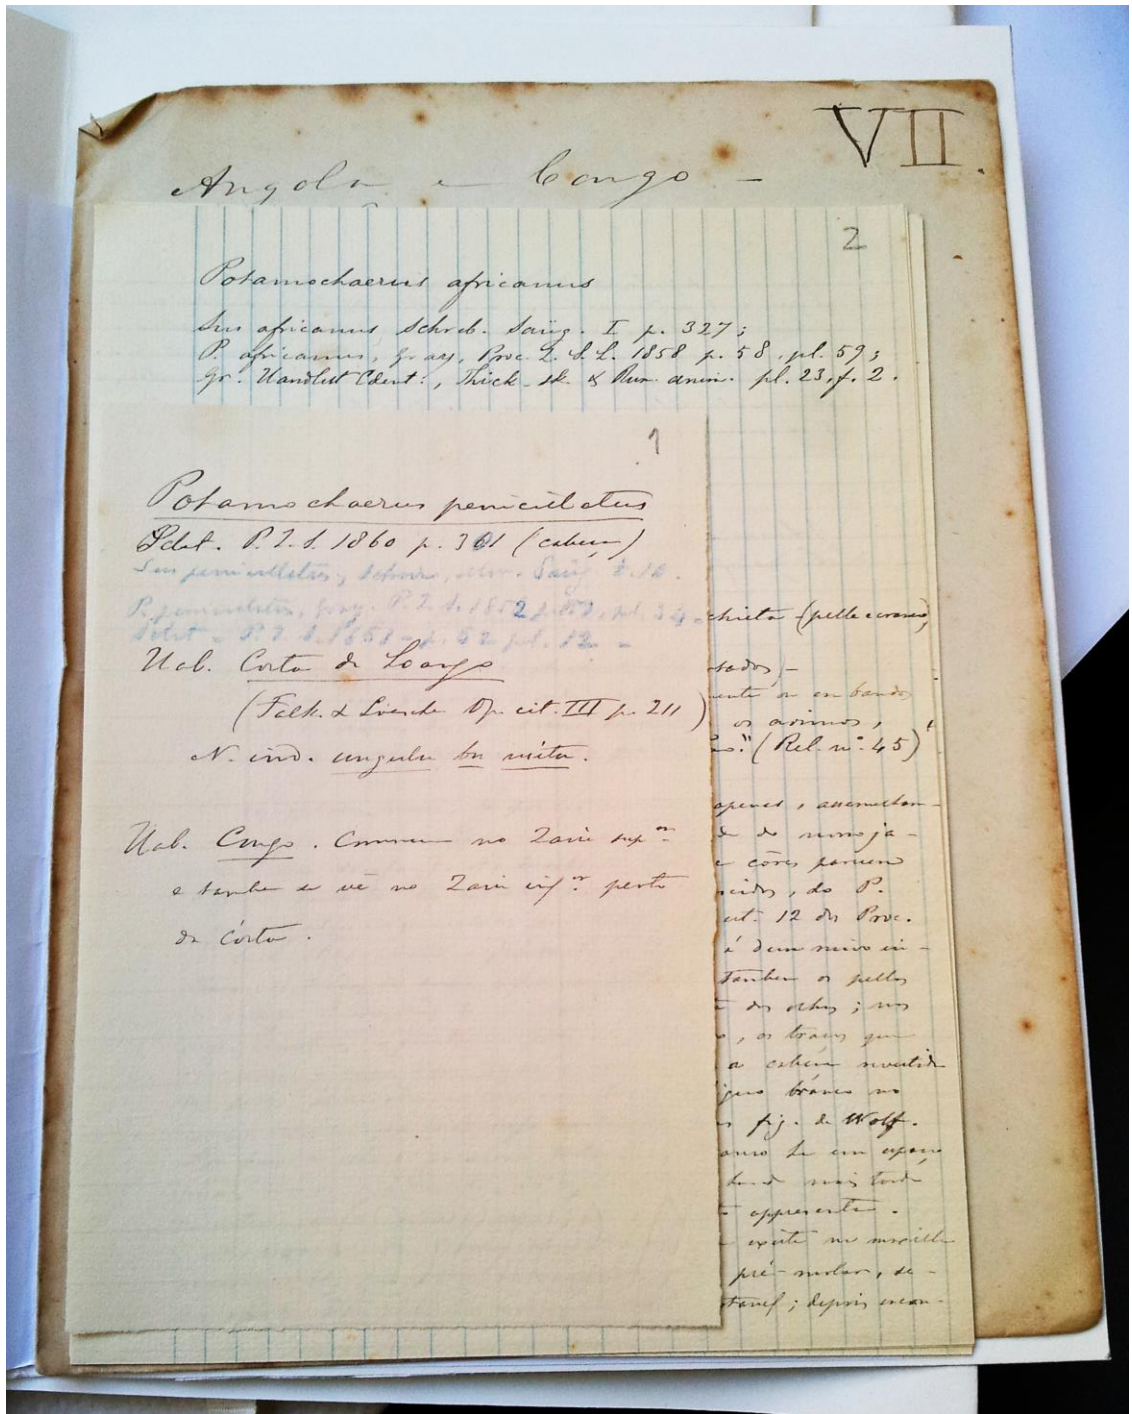 VII.
Angola e Congo -
2
Potamochaerus africanus
Sus africanus Schreb. Säug. I p. 327;
P. africanus, Gray, Proc. Z. S. L. 1858 p. 58, pl. 59;
Gr. Handlist Edent., Thick-sk. & Rum. anim. pl. 23, f. 2.
1
Potamochaerus penicillatus
Sclat. P. Z. S. 1860 p. 301 (cabeça)
Sus penicillatus, Säug.
P. penicillatus, Gray. P. Z. S. 1852 pl. 34
P. Z. S. 1858 - p. 62 pl. 12 -
Hab. Costa de Loango
(Falk. & Op. cit. III p. 211)
N. ind. ungulu bu
Hab. Congo. Commum no Zaire sup.or
e tambem se vê no Zaire inf.or perto
da Costa.
chieta (pelle e craneo)
sados; -
ente ou em bandos
os
" (Rel. nº. 45)
apenas, assemelhan-
e côres
do P.
est. 12 dos Proc.
é dum ruivo in-
tambem os pellos
dos olhos; nos
, os traços que
a cabeça revestida
branco no
fig. de Wolf.
mais tarde
appresenta.
existe no maxilla
pré-molar, de-
; depois encon-